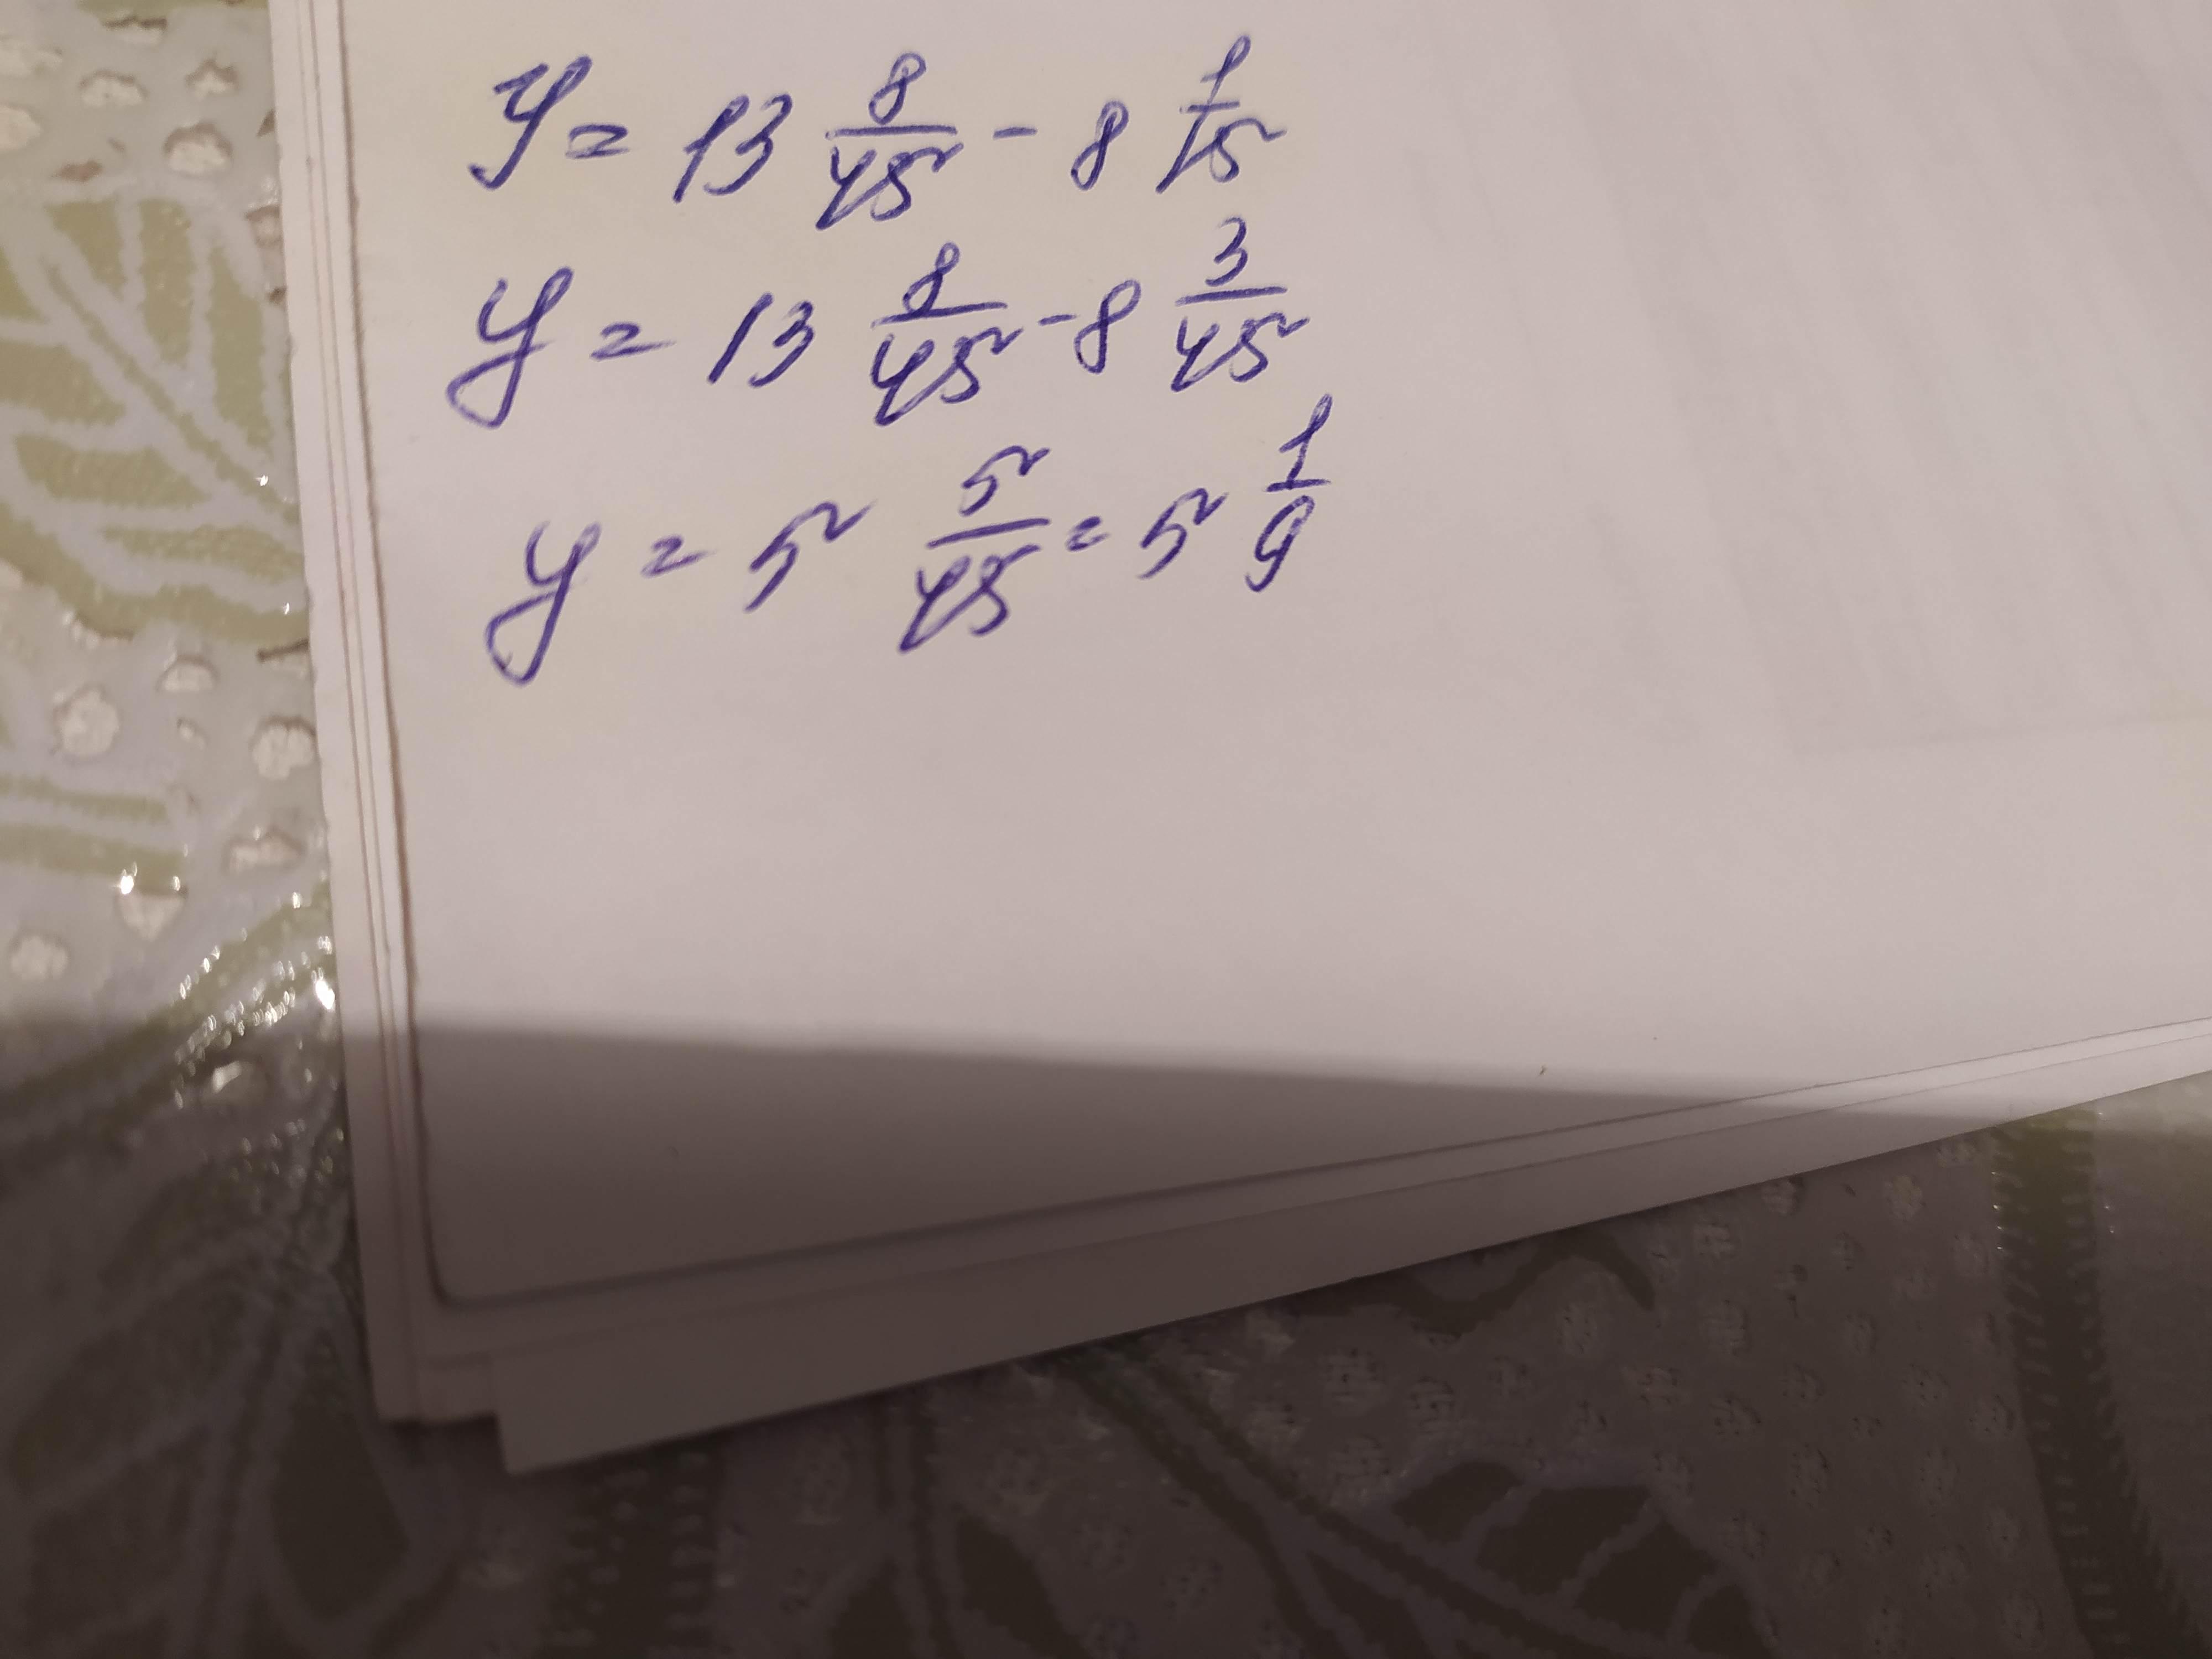 y = 13 8/45 - 8 1/15
y = 13 8/45 - 8 3/45
y = 5 5/45 = 5 1/9